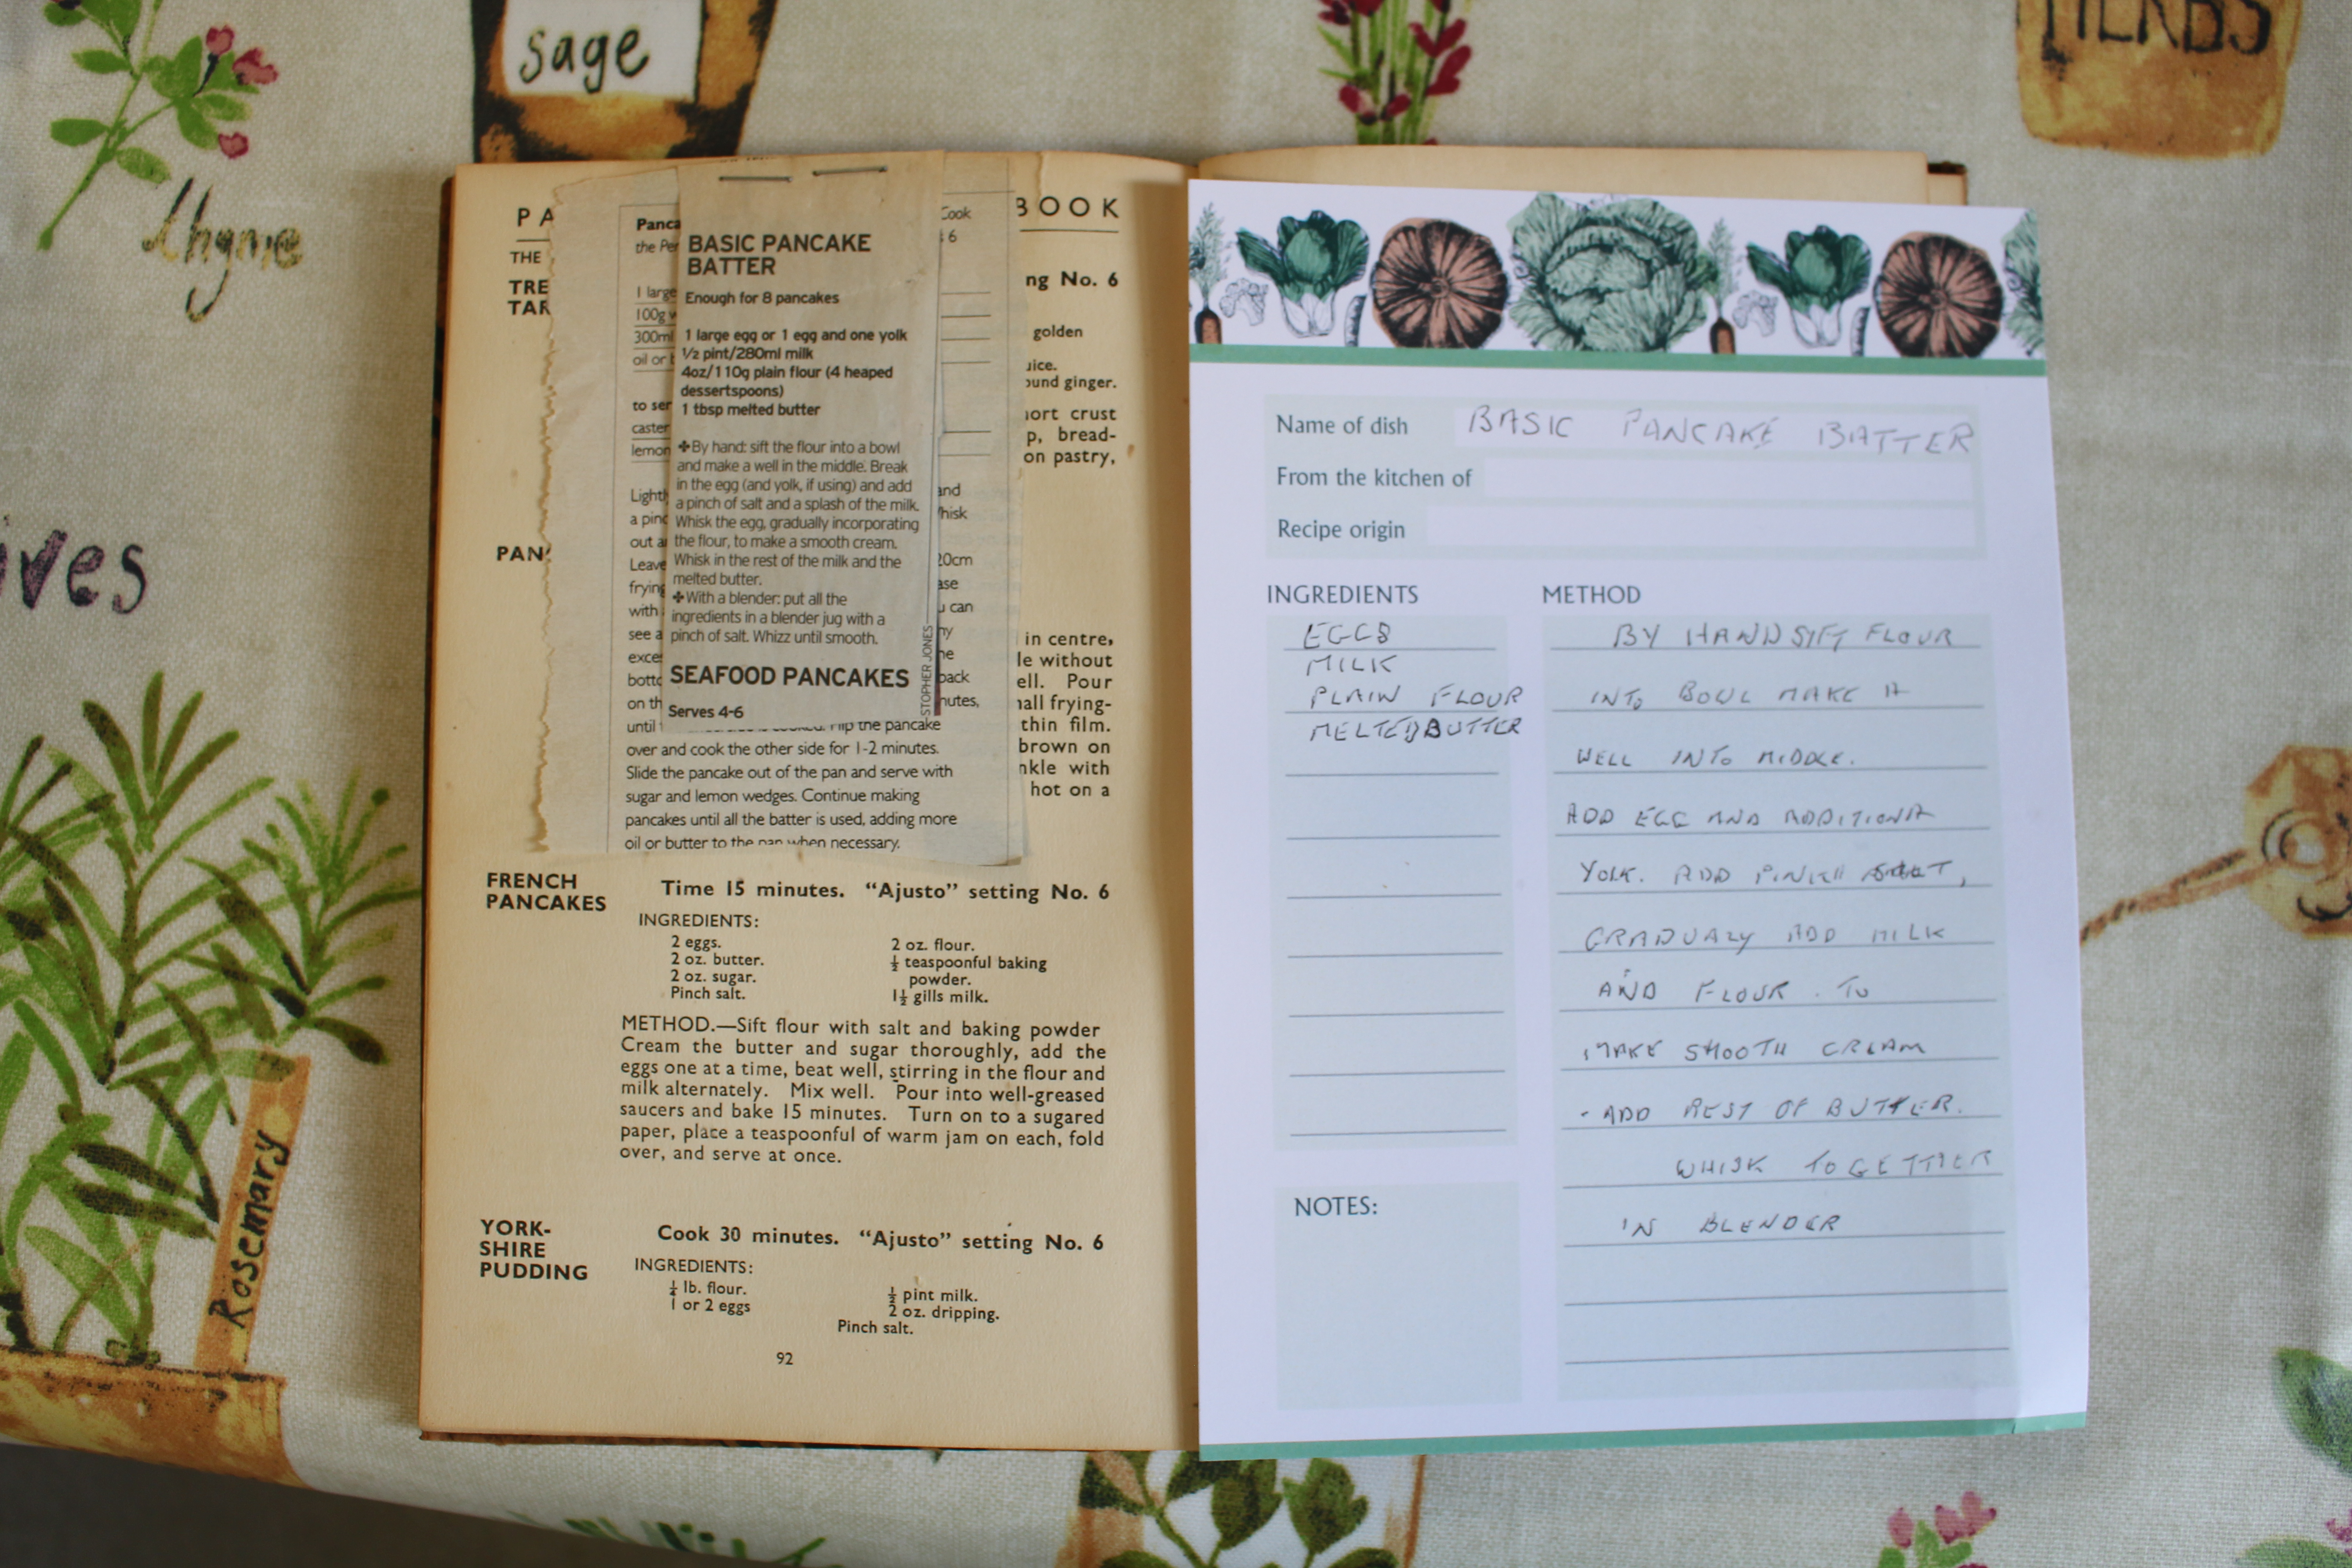 sage
HERBS
thyme
ives
Rosemary
PA
BOOK
THE
TRE
TAR
ng No. 6
golden
uice.
ound ginger.
ort crust
p, bread-
on pastry,
PAN
in centre,
le without
ell. Pour
all frying-
thin film.
brown on
nkle with
hot on a
Panca
Cook
the Per
6
1 large
100g
300ml
oil or
to ser
caster
lemon
Lightl
and
a pinc
hisk
out a
Leave
20cm
frying
ase
with
u can
see a
ny
exce
he
botto
back
on th
nutes,
until
flip the pancake
over and cook the other side for 1-2 minutes.
Slide the pancake out of the pan and serve with
sugar and lemon wedges. Continue making
pancakes until all the batter is used, adding more
oil or butter to the pan when necessary.
BASIC PANCAKE
BATTER
Enough for 8 pancakes
1 large egg or 1 egg and one yolk
½ pint/280ml milk
4oz/110g plain flour (4 heaped
dessertspoons)
1 tbsp melted butter
✤By hand: sift the flour into a bowl
and make a well in the middle. Break
in the egg (and yolk, if using) and add
a pinch of salt and a splash of the milk.
Whisk the egg, gradually incorporating
the flour, to make a smooth cream.
Whisk in the rest of the milk and the
melted butter.
✤With a blender: put all the
ingredients in a blender jug with a
pinch of salt. Whizz until smooth.
STOPHER JONES
SEAFOOD PANCAKES
Serves 4-6
FRENCH
PANCAKES
Time 15 minutes. “Ajusto” setting No. 6
INGREDIENTS:
2 eggs.
2 oz. butter.
2 oz. sugar.
Pinch salt.
2 oz. flour.
½ teaspoonful baking
powder.
1½ gills milk.
METHOD.—Sift flour with salt and baking powder
Cream the butter and sugar thoroughly, add the
eggs one at a time, beat well, stirring in the flour and
milk alternately. Mix well. Pour into well-greased
saucers and bake 15 minutes. Turn on to a sugared
paper, place a teaspoonful of warm jam on each, fold
over, and serve at once.
YORK-
SHIRE
PUDDING
Cook 30 minutes. “Ajusto” setting No. 6
INGREDIENTS:
¼ lb. flour.
1 or 2 eggs
½ pint milk.
2 oz. dripping.
Pinch salt.
92
Name of dish BASIC PANCAKE BATTER
From the kitchen of
Recipe origin
INGREDIENTS
EGGS
MILK
PLAIN FLOUR
MELTED BUTTER
NOTES:
METHOD
BY HAND SIFT FLOUR
INTO BOWL MAKE A
WELL INTO MIDDLE.
ADD EGG AND ADDITIONA
YOLK. ADD PINCH SALT,
GRADUALY ADD MILK
AND FLOUR. TO
MAKE SMOOTH CREAM
- ADD REST OF BUTTER.
WHISK TOGETTHER
IN BLENDER